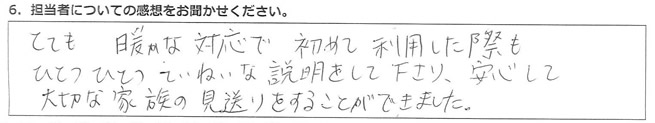 6. 担当者についての感想をお聞かせください。
とても 暖かな 対応で 初めて 利用した際も
ひとつひとつ ていねいな 説明をして下さり、安心して
大切な家族の見送りをすることができました。